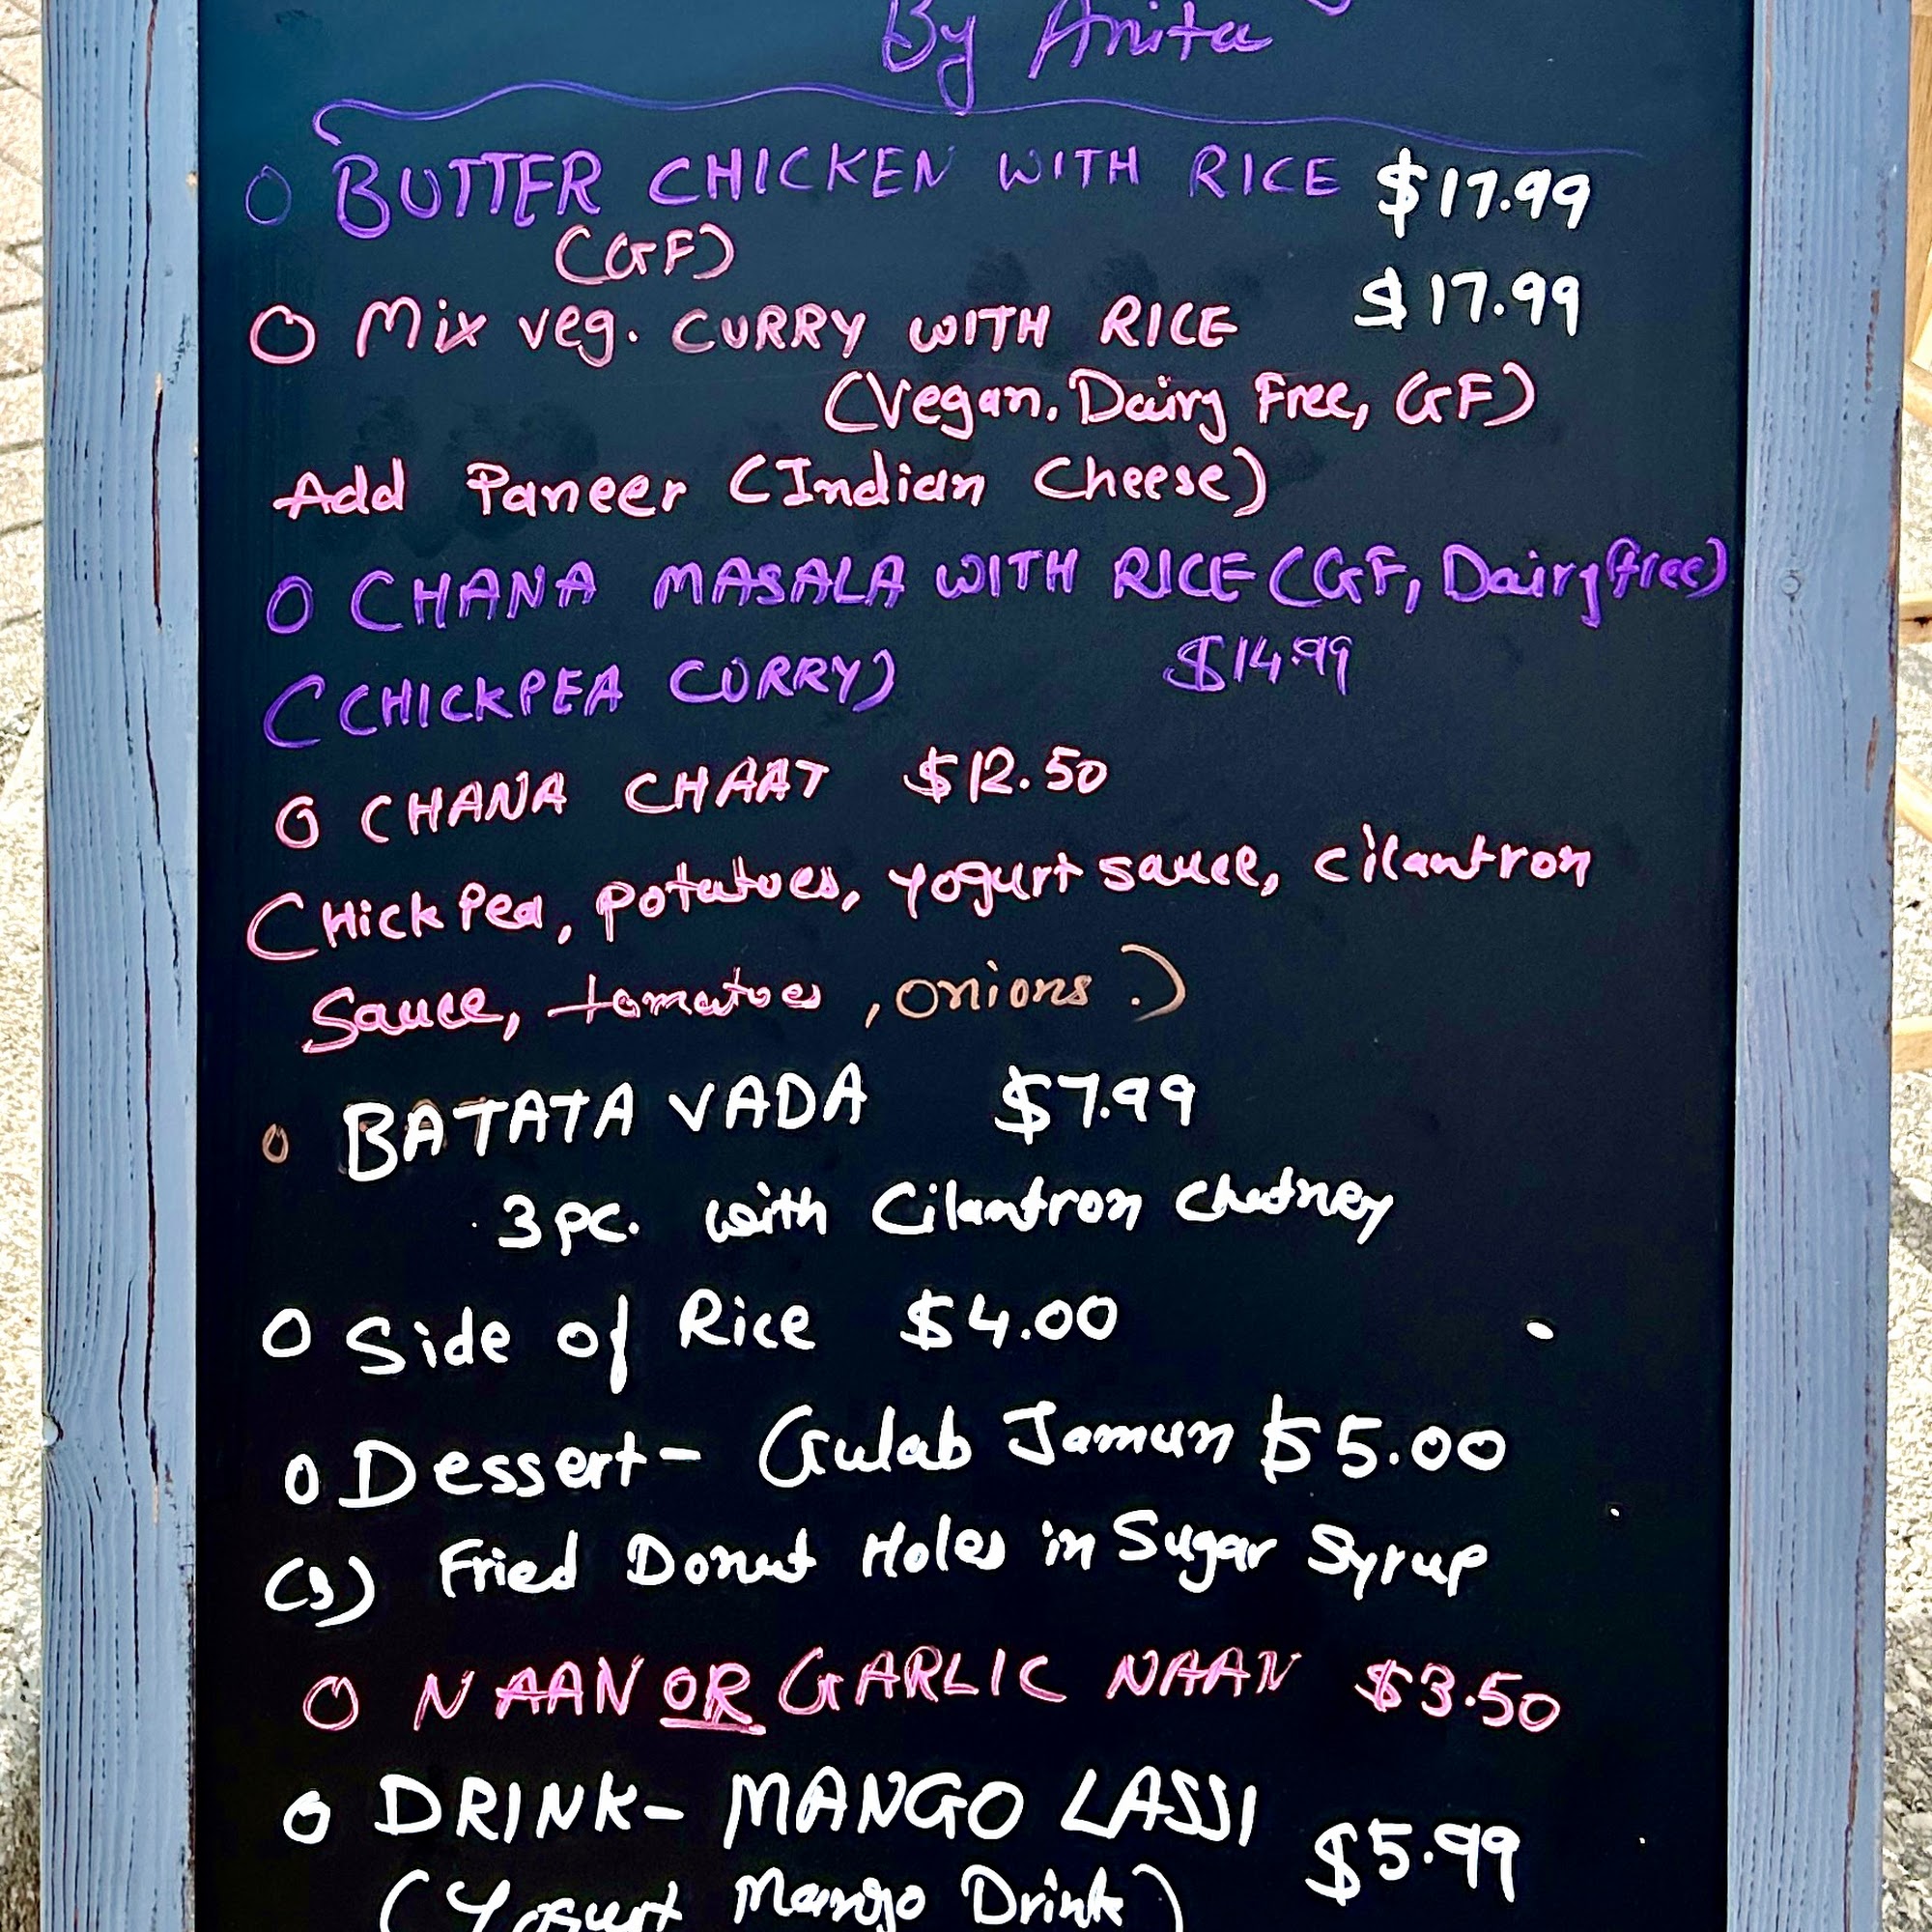 By Anita
O BUTTER CHICKEN WITH RICE $17.99
(GF)
O Mix veg. CURRY WITH RICE $17.99
(Vegan. Dairy Free, GF)
Add Paneer (Indian Cheese)
O CHANA MASALA WITH RICE (GF, Dairy free)
(CHICKPEA CURRY) $14.99
O CHANA CHAAT $12.50
Chick Pea, potatoes, yogurt sauce, cilantron
Sauce, tomatoes, onions.)
O BATATA VADA $7.99
3 pc. with Cilantron Chutney
O Side of Rice $4.00
O Dessert- Gulab Jamun $5.00
(3) Fried Donut Holes in Sugar Syrup
O NAAN OR GARLIC NAAN $3.50
O DRINK- MANGO LASSI $5.99
(Yogurt Mango Drink)